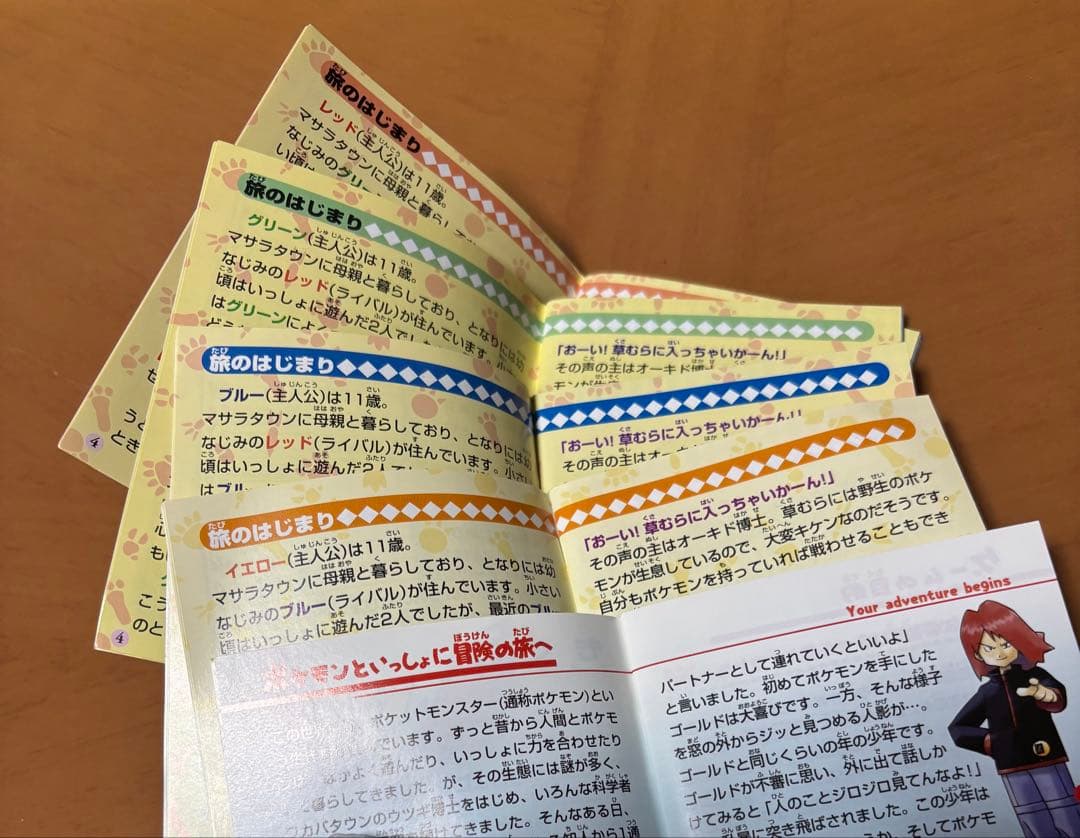 旅のはじまり
レッド(主人公)は11歳。
マサラタウンに母親と暮らし
なじみのグリー
い頃は
4
旅のはじまり
グリーン(主人公)は11歳。
マサラタウンに母親と暮らしており、となりには幼
なじみのレッド(ライバル)が住んでいます。小さ
頃はいっしょに遊んだ2人でし
はグリーンによ
4
「おーい! 草むらに入っちゃいかーん!」
その声の主はオーキド博士
モンが生息
旅のはじまり
ブルー(主人公)は11歳。
マサラタウンに母親と暮らしており、となりには幼
なじみのレッド(ライバル)が住んでいます。小さい
頃はいっしょに遊んだ2人で
はブルー
「おーい! 草むらに入っちゃいかーん!」
その声の主はオーキド博士
旅のはじまり
イエロー(主人公)は11歳。
マサラタウンに母親と暮らしており、となりには幼
なじみのブルー(ライバル)が住んでいます。小さい
頃はいっしょに遊んだ2人でしたが、最近のブルー
「おーい! 草むらに入っちゃいかーん!」
その声の主はオーキド博士。草むらには野生のポケ
モンが生息しているので、大変キケンなのだそうです。
自分もポケモンを持っていれば戦わせることもでき
ポケモンといっしょに冒険の旅へ
ポケットモンスター(通称ポケモン)とい
います。ずっと昔から人間とポケモ
なかよく遊んだり、いっしょに力を合わせたり
と暮らしてきました。が、その生態には謎が多く、
ワカバタウンのウツギ博士をはじめ、いろんな科学者
続けてきました。そんなある日、
Your adventure begins
パートナーとして連れていくといいよ」
と言いました。初めてポケモンを手にした
ゴールドは大喜びです。一方、そんな様子
を窓の外からジッと見つめる人影が…。
ゴールドと同じくらいの年の少年です。
ゴールドが不審に思い、外に出て話しか
けてみると「人のことジロジロ見てんなよ!」
と急に突き飛ばされました。この少年は
か、そしてポケモ